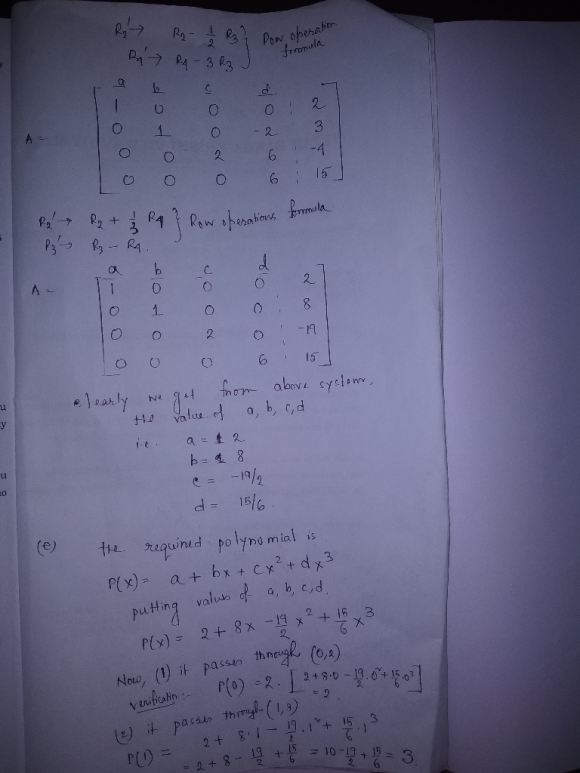 R2' → R2 - 1/2 R3 } Row operation formula
R4' → R4 - 3 R3
a b c d
A = [ 1 0 0 0 : 2
0 1 0 -2 : 3
0 0 2 6 : -4
0 0 0 6 : 15 ]
R2' → R2 + 1/3 R4 } Row operations formula
R3' → R3 - R4.
a b c d
A = [ 1 0 0 0 : 2
0 1 0 0 : 8
0 0 2 0 : -19
0 0 0 6 : 15 ]
clearly we get from above system,
the value of a, b, c, d
i.e. a = 2
b = 8
c = -19/2
d = 15/6
(e) the required polynomial is
P(x) = a + bx + cx² + dx³
putting values of a, b, c, d.
P(x) = 2 + 8x - 19/2 x² + 15/6 x³
Now, (1) it passes through (0,2)
verification:- P(0) = 2. [2+8.0 - 19/2 .0² + 15/6 .0³] = 2
(2) it passes through (1,3)
P(1) = 2 + 8.1 - 19/2 .1² + 15/6 .1³
= 2 + 8 - 19/2 + 15/6 = 10 - 19/2 + 15/6 = 3.